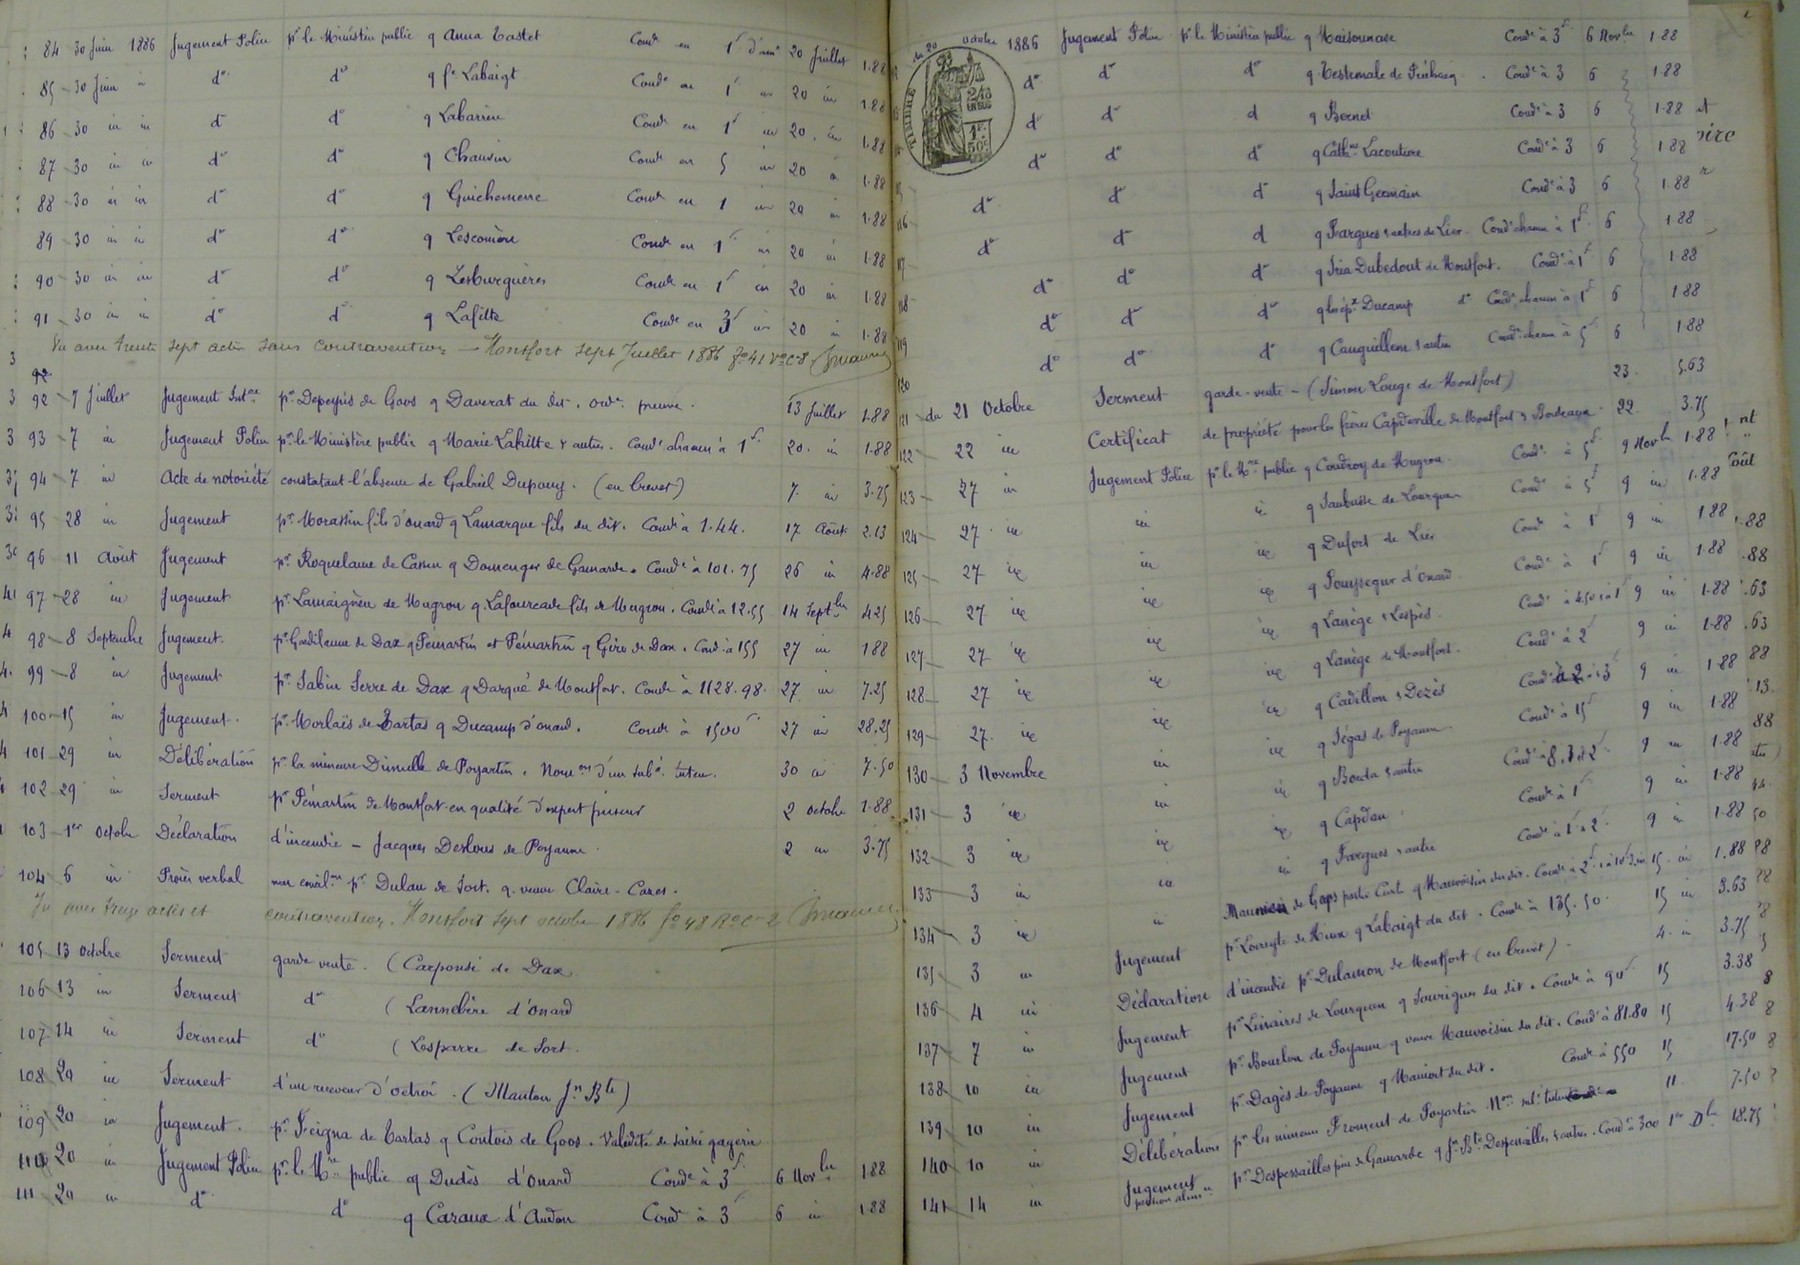 84 30 Juin 1886 Jugement Police pr le Ministère public q Anna Castet Condée en 1f d'am 20 Juillet 1.88
85 30 Juin in do do q fe Labaigt Condé en 1f in 20 in 1.88
86 30 in in do do q Labarrère Condé en 1f in 20 in 1.88
87 30 in in do do q Chauvin Condé en 5 in 20 in 1.88
88 30 in in do do q Guichemerre Condé en 1 in 20 in 1.88
89 30 in in do do q Lescomère Condé en 1f in 20 in 1.88
90 30 in in do do q Lesburguères Condé en 1f in 20 in 1.88
91 30 in in do do q Lafitte Condé en 3f in 20 in 1.88
Vu avec trente sept actes sans contravention Montfort sept Juillet 1886 fo 41 Vo C 8
92
92 7 Juillet Jugement Intre pr Depeyris de Goos q Daverat du dit. ordt preuve. 13 Juillet 1.88
93 7 in Jugement Police pr le Ministère public q Marie Lahitte & autres. Condt chacun à 1f 20 in 1.88
94 7 in Acte de notoriété constatant l'absence de Gabriel Dupouy. (en brevet) 7 in 3.75
95 28 in Jugement pr Morassin fils d'onard q Lamarque fils du dit. Condé à 1.44. 17 Août 2.13
96 11 Août Jugement pr Roquelaure de Cassen q Domenger de Gamarde. Condé à 101.75 26 in 4.88
97 28 in Jugement pr Lamaignère de Mugron q Lafourcade fils de Mugron. Condé à 12.55 14 Septbre 4.25
98 8 Septembre Jugement. pr Godilaume de Dax q Pémartin et Pémartin q Giro de Dax. Cond à 155 27 in 1.88
99 8 in Jugement pr Sabin Serre de Dax q Darqué de Montfort. Condé à 1128.98. 27 in 7.25
100 15 in Jugement. pr Morlaës de Tartas q Ducamp d'onard. Condé à 1500f 27 in 28.25
101 29 in Délibération pr la mineure Dumelle de Poyartin. Nomon d'un subé tuteur. 30 in 7.50
102 29 in Serment pr Pémartin de Montfort en qualité d'expert priseur 2 octobre 1.88
103 1er Octobre Déclaration d'incendie – Jacques Desbons de Poyanne. 2 in 3.75
104 6 in Procès verbal non concilon pr Dulau de Sort. q. veuve Claire-Cares.
Vu avec treize actes et contravention. Montfort sept octobre 1886 fo 48 Ro C 2
105 13 Octobre Serment garde vente. (Carponsé de Dax
106 13 in Serment do (Lannebère d'onard
107 14 in Serment do (Lesparre de Sort.
108 20 in Serment d'un receveur d'octroi. (Mauton Jn Bte)
109 20 in Jugement. pr Feigna de Tartas q Contois de Goos. Validité de saisie gagerie
110 20 in Jugement Police pr le Mre public q Dudès d'onard Condé à 3f 6 Novbre 1.88
111 20 in do do q Caraux d'Audon Condé à 3f 6 in 1.88
du 20 octobre 1886 Jugement Police pr le Ministère public q Maisonnave Condé à 3f 6 Novbre 1.88
TIMBRE
1F. 50c.
do do do q Testemale de Préchacq. Condé à 3 6 1.88
do do d q Bernet Condé à 3 6 1.88
do do do q Cathne Lacouture Condé à 3 6 1.88
do do do q Saint Germain Condé à 3 6 1.88
116 do do d q Fargues & autres de Lier. Condt chacun à 1f 6 1.88
117 do do do q Iria Dubedout de Montfort. Condé à 1f 6 1.88
118 do do do q Ducamp do Condt chacun à 1f 6 1.88
119 do do do q Cauquillem & autre Condt chacun à 5f 6 1.88
120
121 du 21 Octobre Serment garde-vente – (Simon Louge de Montfort) 23. 5.63
122 22 in Certificat de propriété pour les frères Capdeville de Montfort & Bordeaux. 22. 3.75
123 27 in Jugement Police pr le Mre public q Coudroy de Mugron. Condé à 5f 9 Novbre 1.88
124 27 in in in q Saubusse de Lourquen Condé à 5f 9 in 1.88
125 27 in in in q Dufort de Lier Condé à 1f 9 in 1.88
126 27 in in in q Pouysségur d'onard Condé à 1f 9 in 1.88
127 27 in in in q Lanège & Lespès. Condé à 4.50 & à 1f 9 in 1.88
128 27 in in in q Lanège de Montfort. Condé à 2f 9 in 1.88
129 27 in in in q Cadillon & Dezès Condé à 2 & 3f 9 in 1.88
130 3 Novembre in in q Ségas de Poyanne Condé à 15f 9 in 1.88
131 3 in in in q Borda & autre Condé à 8, 3 & 2f 9 in 1.88
132 3 in in in q Capdau. Condé à 1f 9 in 1.88
133 3 in in in q Fargues & autre Condé à 1f & 2f 9 in 1.88
134 3 in in de Gaps partie Civile q Mauvoisin du dit. 15 in 1.88
135 3 in Jugement pr Loreyte de Hinx q Labaigt du dit. Condé à 135.50. 15 in 3.63
136 4 in Déclaration d'incendie pr Dulamon de Montfort (en brevet). 4. in 3.75
137 7 in Jugement pr Linaires de Lourquen q Sourigues du dit. Condé à 90f. 15 3.38
138 10 in Jugement pr Bourlon de Poyanne q veuve Mauvoisin du dit. Condé à 81.80 15 4.38
139 10 in Jugement pr Dagès de Poyanne q Maniort du dit. Condé à 550 15 17.50
140 10 in Délibération pr les mineurs Froment de Poyartin. Non subé tuteur 11 7.50
141 14 in Jugement pension alimre pr Despessailles père de Gamarde q Jn Bte Despessailles & autres. Condé à 300 1er Dbre 18.75